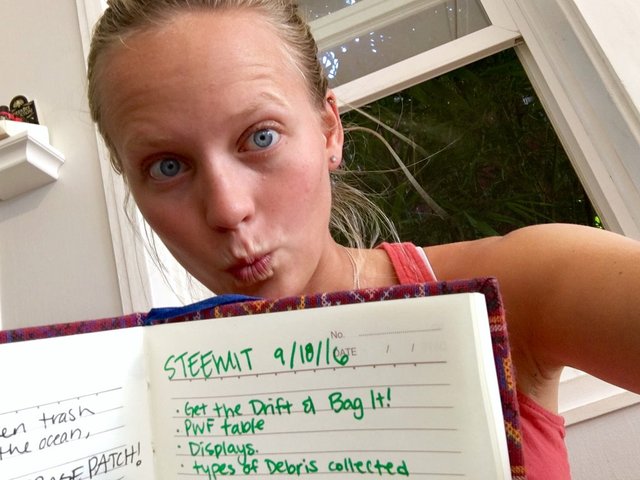 en trash
the ocean,
PATCH!
No.
STEEMIT 9/18/16
DATE / /
• Get the Drift & Bag It!
• PWF table
• Displays.
• types of Debris collected